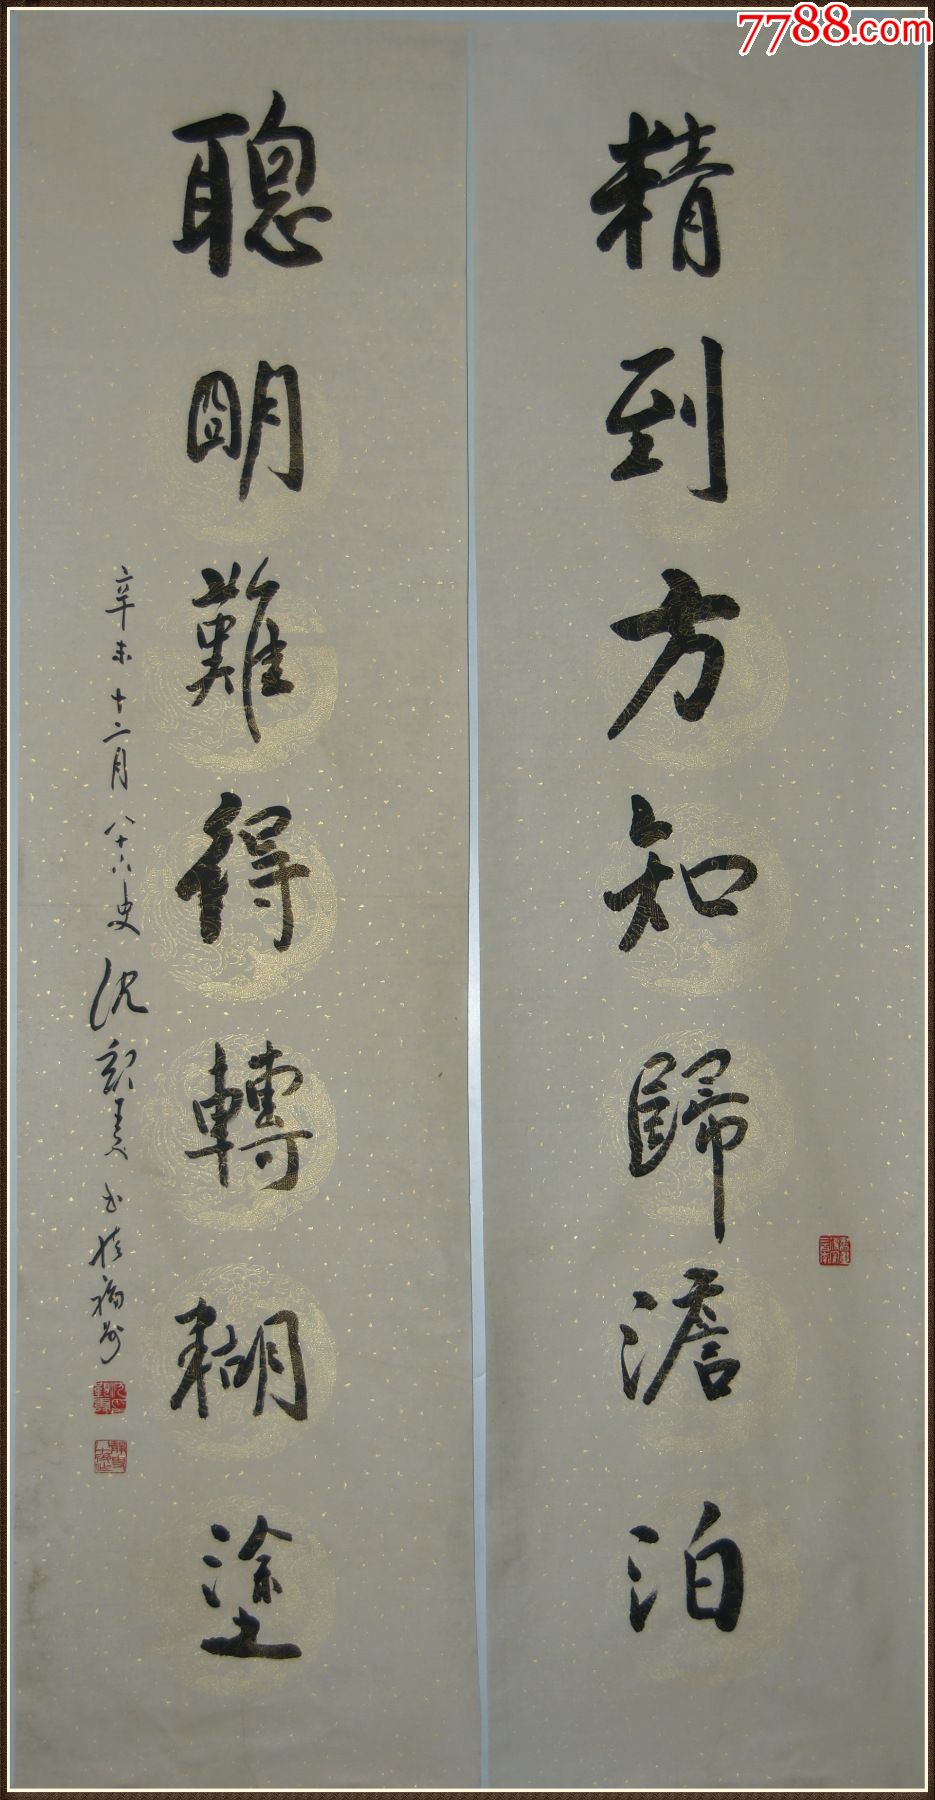 7788.com
精到方知歸澹泊
聰明難得轉糊塗
辛未十二月八十六叟沈覲壽書於福州